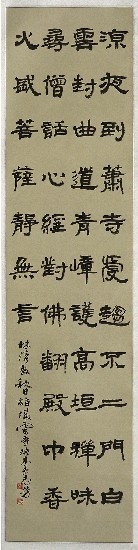 涼夜到蕭寺慢趨不二門白
雲封曲道青嶂護高垣禪味
尋僧話心經對佛翻殿中香
火盛菩薩靜無言